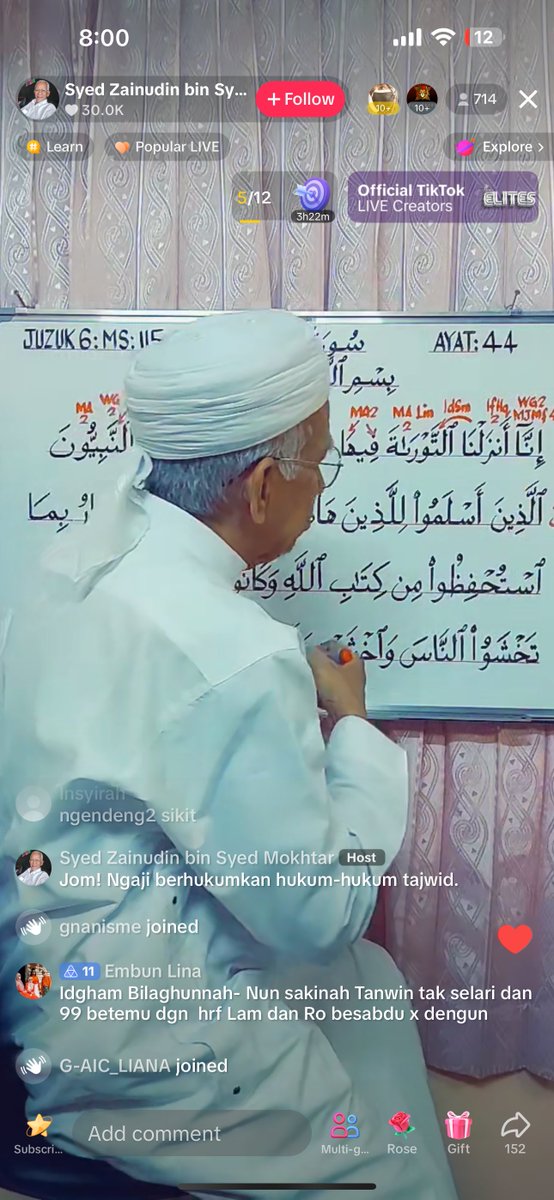 8:00
12
Syed Zainudin bin Sy...
30.0K
+ Follow
10+
10+
714
Learn
Popular LIVE
Explore >
5/12
3h22m
Official TikTok
LIVE Creators
ELITES
JUZUK 6: MS: 115
AYAT: 44
MA 2
WG 2
MA2
MA 2
Lin
IdSm
IfHq 2
WG2
إِنَّآ أَنزَلْنَا ٱلتَّوْرَىٰةَ فِيهَا
ٱلنَّبِيُّونَ
ٱلَّذِينَ أَسْلَمُوا۟ لِلَّذِينَ
بِمَا
ٱسْتُحْفِظُوا۟ مِن كِتَٰبِ ٱللَّهِ وَكَانُوا۟
تَخْشَوُا۟ ٱلنَّاسَ
Insyirah
ngendeng2 sikit
Syed Zainudin bin Syed Mokhtar Host
Jom! Ngaji berhukumkan hukum-hukum tajwid.
gnanisme joined
11 Embun Lina
Idgham Bilaghunnah- Nun sakinah Tanwin tak selari dan
99 betemu dgn hrf Lam dan Ro besabdu x dengun
G-AIC_LIANA joined
Add comment
Subscri...
Multi-g...
Rose
Gift
152